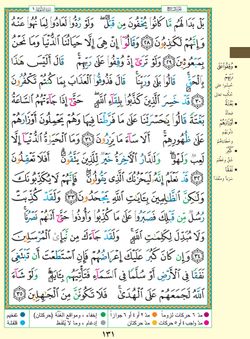 بَلْ بَدَا لَهُم مَّا كَانُوا۟ يُخْفُونَ مِن قَبْلُ ۖ وَلَوْ رُدُّوا۟ لَعَادُوا۟ لِمَا نُهُوا۟
عَنْهُ وَإِنَّهُمْ لَكَـٰذِبُونَ ٢٨ وَقَالُوٓا۟ إِنْ هِىَ إِلَّا حَيَاتُنَا ٱلدُّنْيَا وَمَا نَحْنُ
بِمَبْعُوثِينَ ٢٩ وَلَوْ تَرَىٰٓ إِذْ وُقِفُوا۟ عَلَىٰ رَبِّهِمْ ۚ قَالَ أَلَيْسَ هَـٰذَا
بِٱلْحَقِّ ۚ قَالُوا۟ بَلَىٰ وَرَبِّنَا ۚ قَالَ فَذُوقُوا۟ ٱلْعَذَابَ بِمَا كُنتُمْ تَكْفُرُونَ
٣٠ قَدْ خَسِرَ ٱلَّذِينَ كَذَّبُوا۟ بِلِقَآءِ ٱللَّهِ ۖ حَتَّىٰٓ إِذَا جَآءَتْهُمُ ٱلسَّاعَةُ
بَغْتَةً قَالُوا۟ يَـٰحَسْرَتَنَا عَلَىٰ مَا فَرَّطْنَا فِيهَا وَهُمْ يَحْمِلُونَ أَوْزَارَهُمْ
عَلَىٰ ظُهُورِهِمْ ۚ أَلَا سَآءَ مَا يَزِرُونَ ٣١ وَمَا ٱلْحَيَوٰةُ ٱلدُّنْيَآ إِلَّا
لَعِبٌ وَلَهْوٌ ۖ وَلَلدَّارُ ٱلْـَٔاخِرَةُ خَيْرٌ لِّلَّذِينَ يَتَّقُونَ ۗ أَفَلَا تَعْقِلُونَ
٣٢ قَدْ نَعْلَمُ إِنَّهُۥ لَيَحْزُنُكَ ٱلَّذِى يَقُولُونَ ۖ فَإِنَّهُمْ لَا يُكَذِّبُونَكَ
وَلَـٰكِنَّ ٱلظَّـٰلِمِينَ بِـَٔايَـٰتِ ٱللَّهِ يَجْحَدُونَ ٣٣ وَلَقَدْ كُذِّبَتْ
رُسُلٌ مِّن قَبْلِكَ فَصَبَرُوا۟ عَلَىٰ مَا كُذِّبُوا۟ وَأُوذُوا۟ حَتَّىٰٓ أَتَىٰهُمْ نَصْرُنَا
ۚ وَلَا مُبَدِّلَ لِكَلِمَـٰتِ ٱللَّهِ ۚ وَلَقَدْ جَآءَكَ مِن نَّبَإِى۟ ٱلْمُرْسَلِينَ
٣٤ وَإِن كَانَ كَبُرَ عَلَيْكَ إِعْرَاضُهُمْ فَإِنِ ٱسْتَطَعْتَ أَن تَبْتَغِىَ
نَفَقًا فِى ٱلْأَرْضِ أَوْ سُلَّمًا فِى ٱلسَّمَآءِ فَتَأْتِيَهُم بِـَٔايَةٍ ۚ وَلَوْ شَآءَ
ٱللَّهُ لَجَمَعَهُمْ عَلَى ٱلْهُدَىٰ ۚ فَلَا تَكُونَنَّ مِنَ ٱلْجَـٰهِلِينَ ٣٥
١٣١